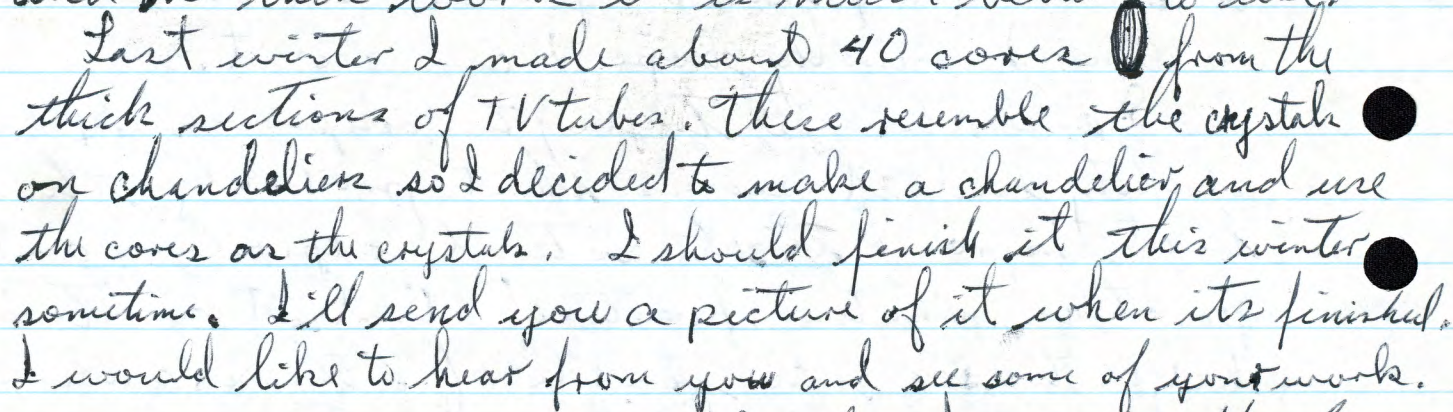 Last winter I made about 40 cores from the
thick sections of TV tubes. These resemble the crystals
on chandeliers so I decided to make a chandelier and use
the cores as the crystals. I should finish it this winter
sometime. I'll send you a picture of it when its finished.
I would like to hear from you and see some of your work.